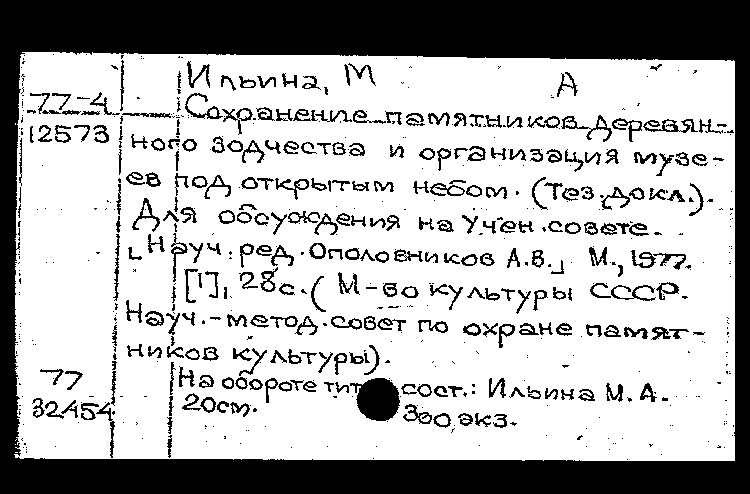 Ильина, М А
77-4 Сохранение памятников деревян-
12573 ного зодчества и организация музе-
ев под открытым небом. (Тез. докл.).
Для обсуждения на Учен. совете.
[Науч. ред. Ополовников А.В.] М., 1977.
[1], 28с. (М-во культуры СССР.
Науч.-метод. совет по охране памят-
ников культуры).
77 На обороте тит сост.: Ильина М.А.
32454 20см. 300 экз.